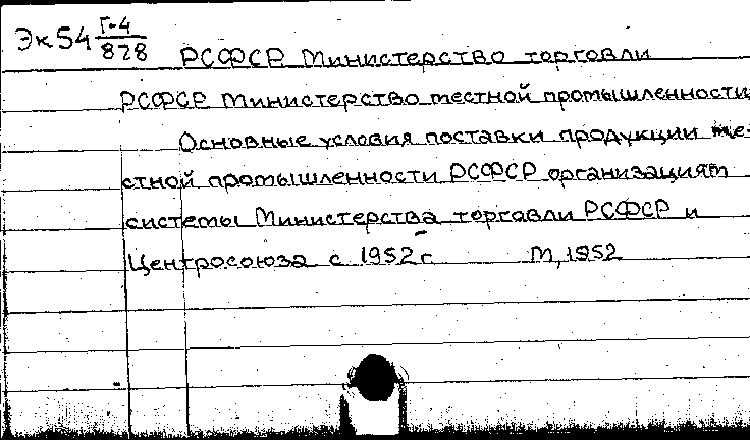 Эк54 Г-4/828
РСФСР Министерство торговли
РСФСР Министерство местной промышленности
Основные условия поставки продукции ме-
стной промышленности РСФСР организациям
системы Министерства торговли РСФСР и
Центросоюза с 1952 г. М, 1952